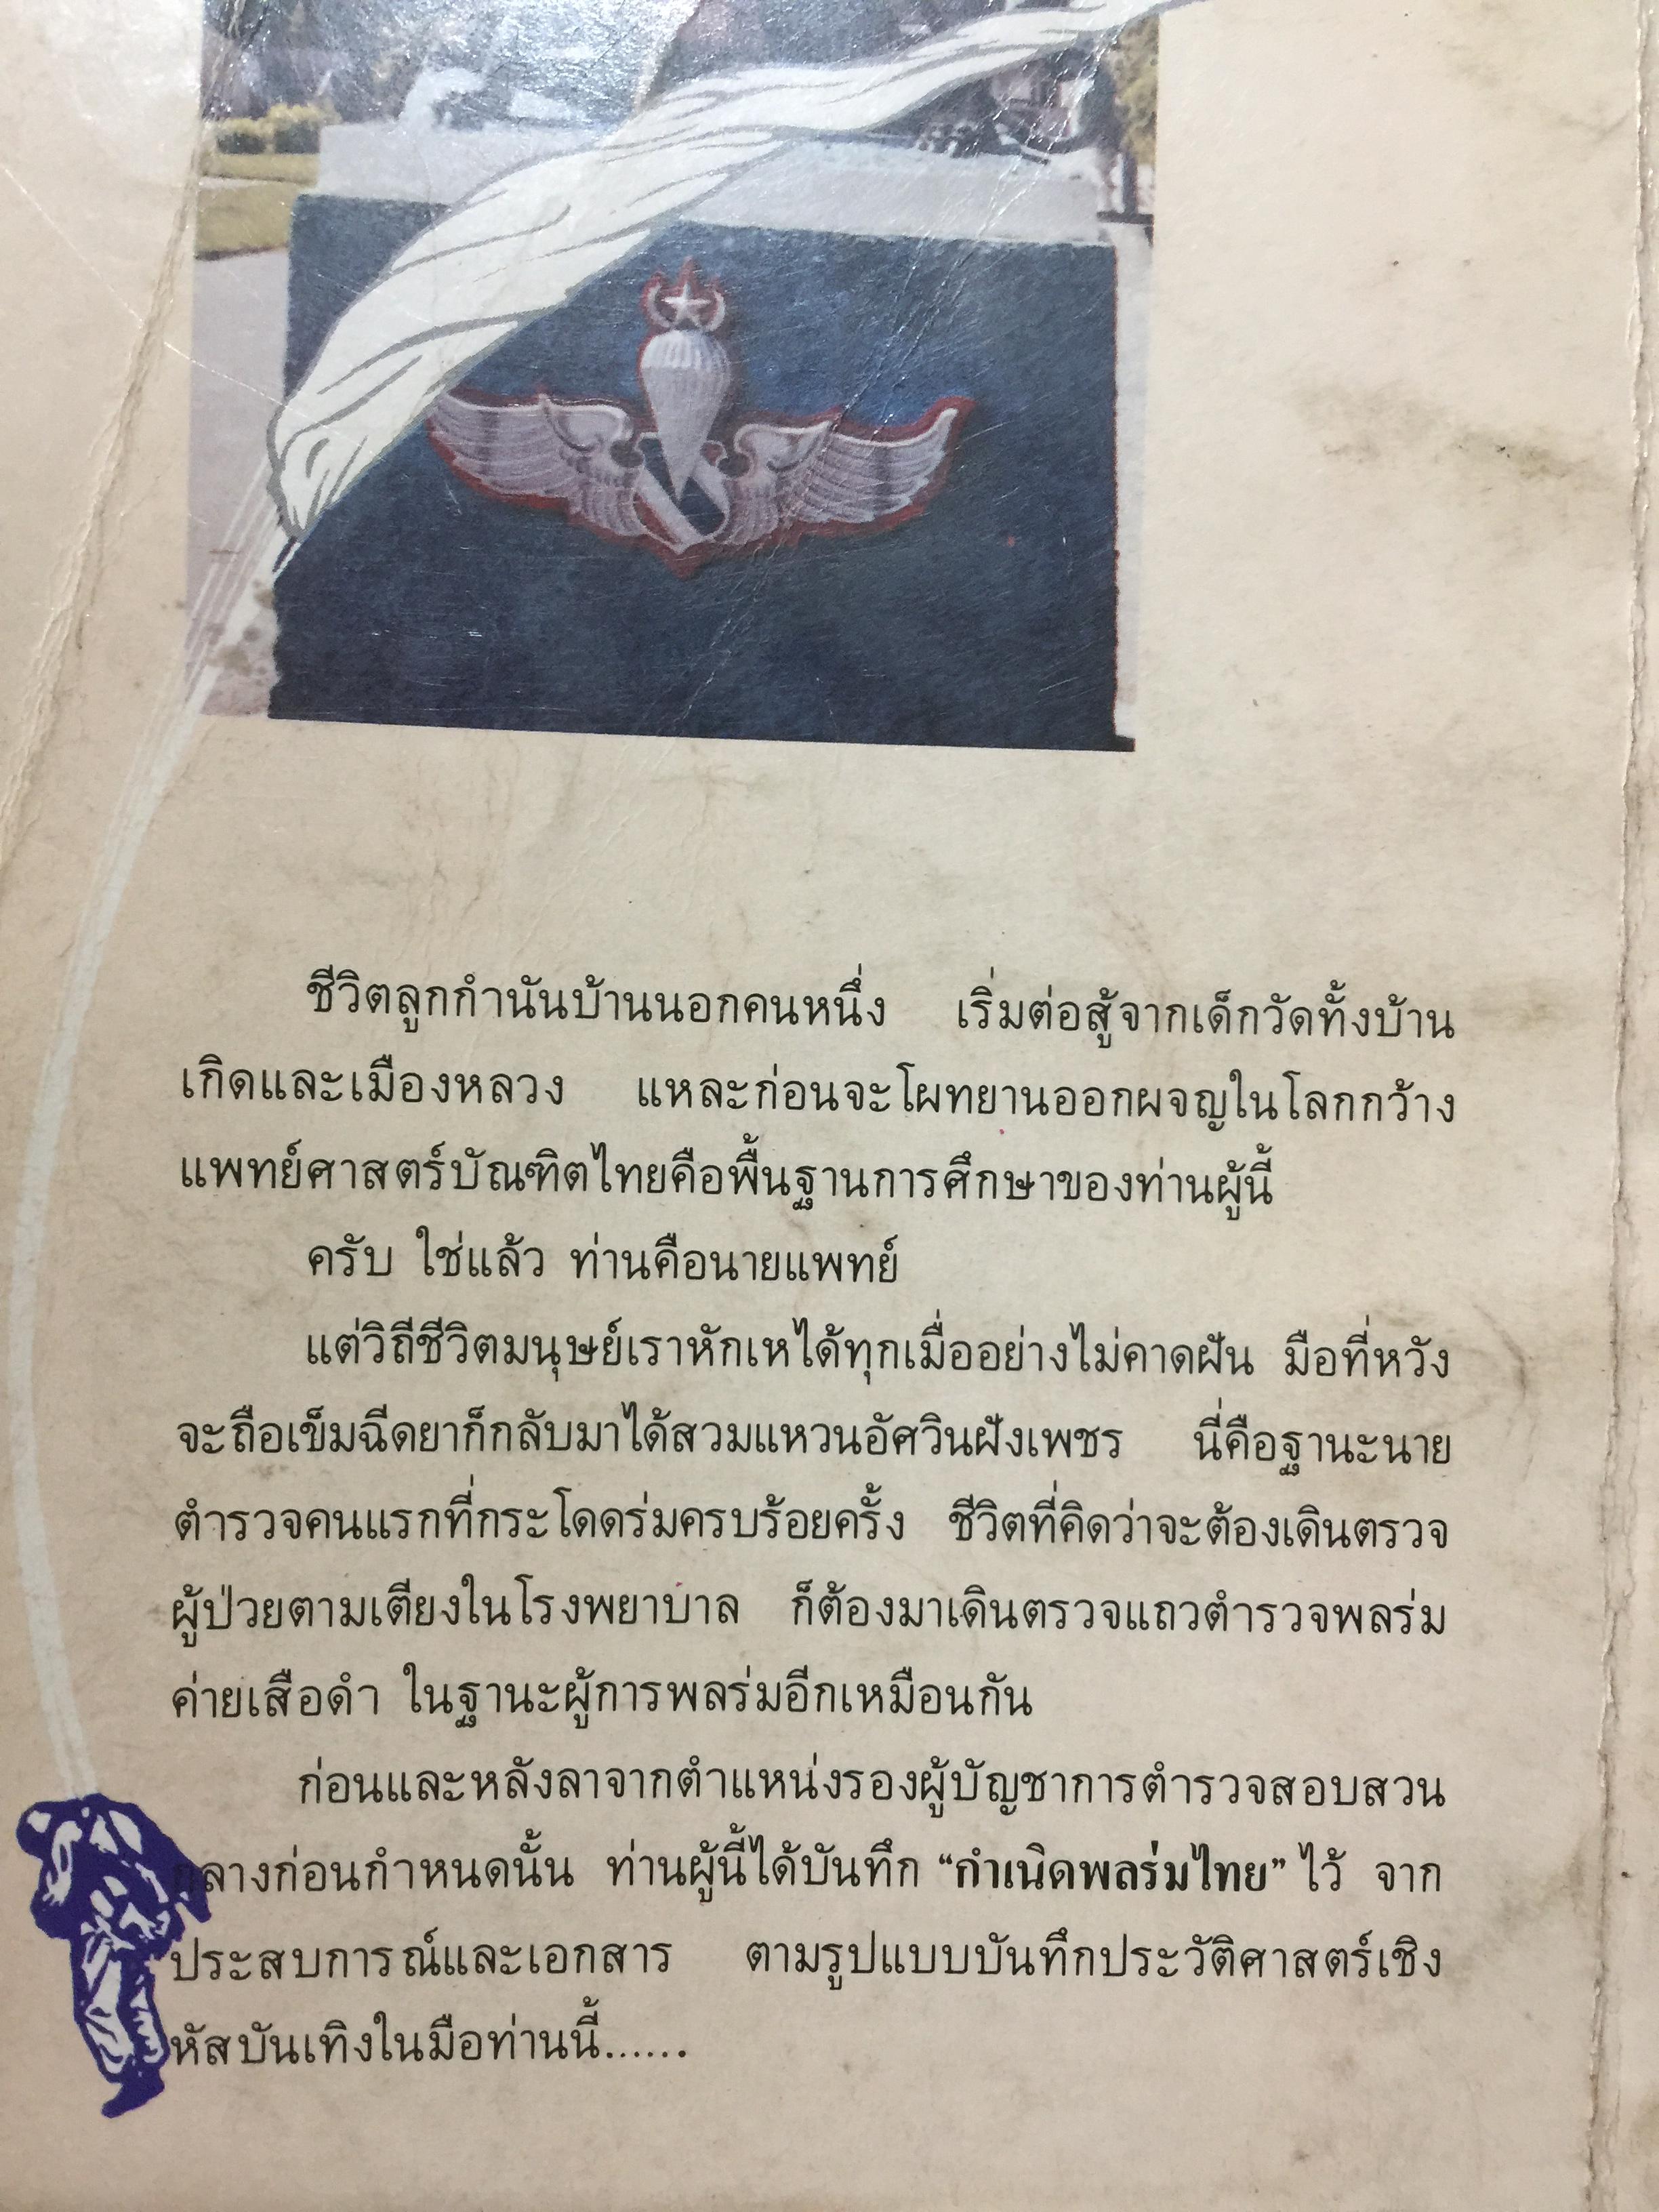 ชีวิตลูกกำนันบ้านนอกคนหนึ่ง เริ่มต่อสู้จากเด็กวัดทั้งบ้าน
เกิดและเมืองหลวง แหละก่อนจะโผทยานออกผจญในโลกกว้าง
แพทย์ศาสตร์บัณฑิตไทยคือพื้นฐานการศึกษาของท่านผู้นี้
ครับ ใช่แล้ว ท่านคือนายแพทย์
แต่วิถีชีวิตมนุษย์เราหักเหได้ทุกเมื่ออย่างไม่คาดฝัน มือที่หวัง
จะถือเข็มฉีดยาก็กลับมาได้สวมแหวนอัศวินฝังเพชร นี่คือฐานะนาย
ตำรวจคนแรกที่กระโดดร่มครบร้อยครั้ง ชีวิตที่คิดว่าจะต้องเดินตรวจ
ผู้ป่วยตามเตียงในโรงพยาบาล ก็ต้องมาเดินตรวจแถวตำรวจพลร่ม
ค่ายเสือดำ ในฐานะผู้การพลร่มอีกเหมือนกัน
ก่อนและหลังลาจากตำแหน่งรองผู้บัญชาการตำรวจสอบสวน
กลางก่อนกำหนดนั้น ท่านผู้นี้ได้บันทึก “กำเนิดพลร่มไทย” ไว้ จาก
ประสบการณ์และเอกสาร ตามรูปแบบบันทึกประวัติศาสตร์เชิง
หัสบันเทิงในมือท่านนี้......